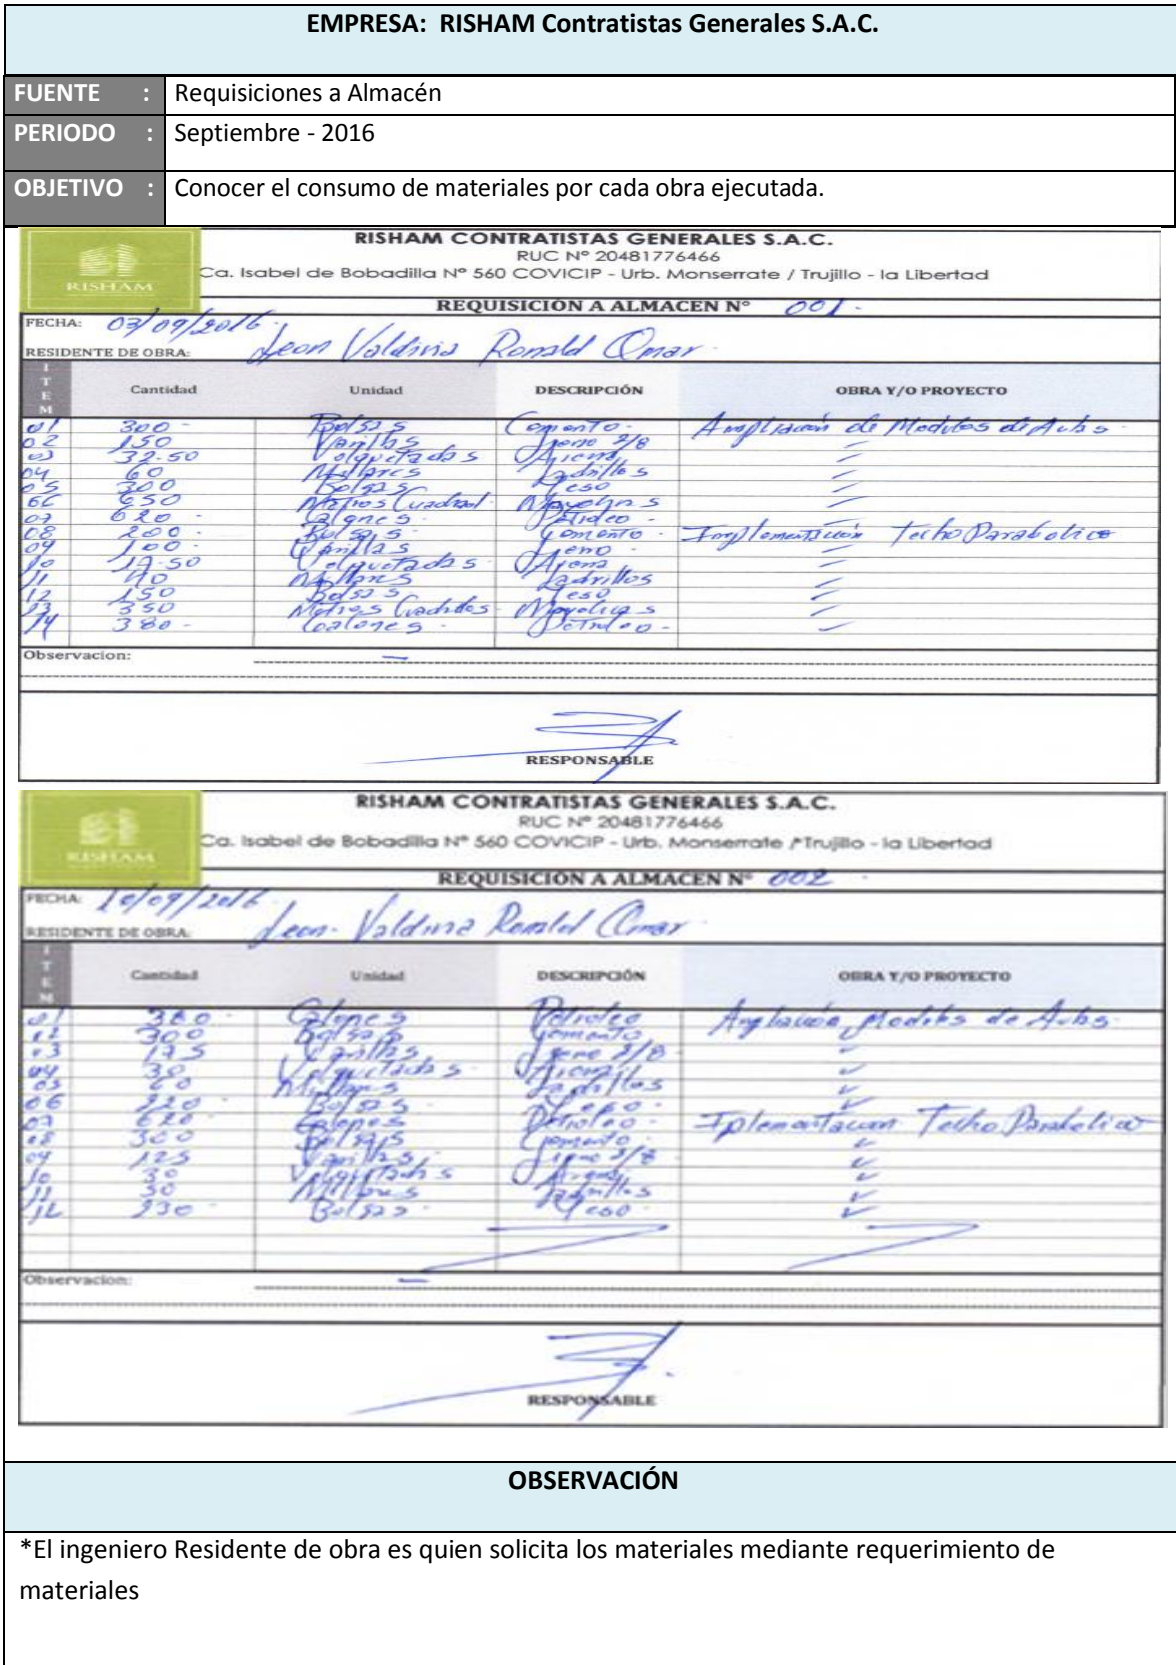 EMPRESA: RISHAM Contratistas Generales S.A.C.
FUENTE : Requisiciones a Almacén
PERIODO : Septiembre - 2016
OBJETIVO : Conocer el consumo de materiales por cada obra ejecutada.
RISHAM
RISHAM CONTRATISTAS GENERALES S.A.C.
RUC Nº 20481776466
Ca. Isabel de Bobadilla Nº 560 COVICIP - Urb. Monserrate / Trujillo - la Libertad
REQUISICION A ALMACEN Nº 001.
FECHA: 03/09/2016.
RESIDENTE DE OBRA: Leon Valdivia Ronald Omar.
ITEM Cantidad Unidad DESCRIPCIÓN OBRA Y/O PROYECTO
01 300 - Bolsas Cemento. Ampliación de Modulos de Aulas.
02 150 Varillas 3/8
03 32.50 Volquetadas Arena
04 60 Millares Ladrillos
05 300 Bolsas Yeso
06 650 Metros Cuadrad. Mayolicas
07 620 - Galones. Petroleo -
08 200 - Bolsas Cemento - Implementación Techo Parabolico
09 100 - Varillas
10 17.50 Volquetadas Arena
11 40 Millares Ladrillos
12 150 Bolsas Yeso
13 350 Metros Cuadrados Mayolicas
14 380 - Galones - Petroleo -
Observacion:
RESPONSABLE
RISHAM
RISHAM CONTRATISTAS GENERALES S.A.C.
RUC Nº 20481776466
Ca. Isabel de Bobadilla Nº 560 COVICIP - Urb. Monserrate / Trujillo - la Libertad
REQUISICION A ALMACEN Nº 002
FECHA: 10/09/2016
RESIDENTE DE OBRA: Leon Valdivia Ronald Omar
ITEM Cantidad Unidad DESCRIPCIÓN OBRA Y/O PROYECTO
01 380 - Galones Petroleo Ampliación Modulos de Aulas.
02 300 Bolsas Cemento
03 175 Varillas 3/8
04 30 Volquetadas Arena
05 60 Millares Ladrillos
06 220 - Bolsas - Yeso -
07 620 - Galones Petroleo - Iplementacion Techo Parabolico
08 300 Bolsas Cemento
09 125 Varillas 3/8
10 30 Volquetadas Arena
11 50 Millares Ladrillos
12 230 - Bolsas - Yeso -
Observacion:
RESPONSABLE
OBSERVACIÓN
*El ingeniero Residente de obra es quien solicita los materiales mediante requerimiento de
materiales